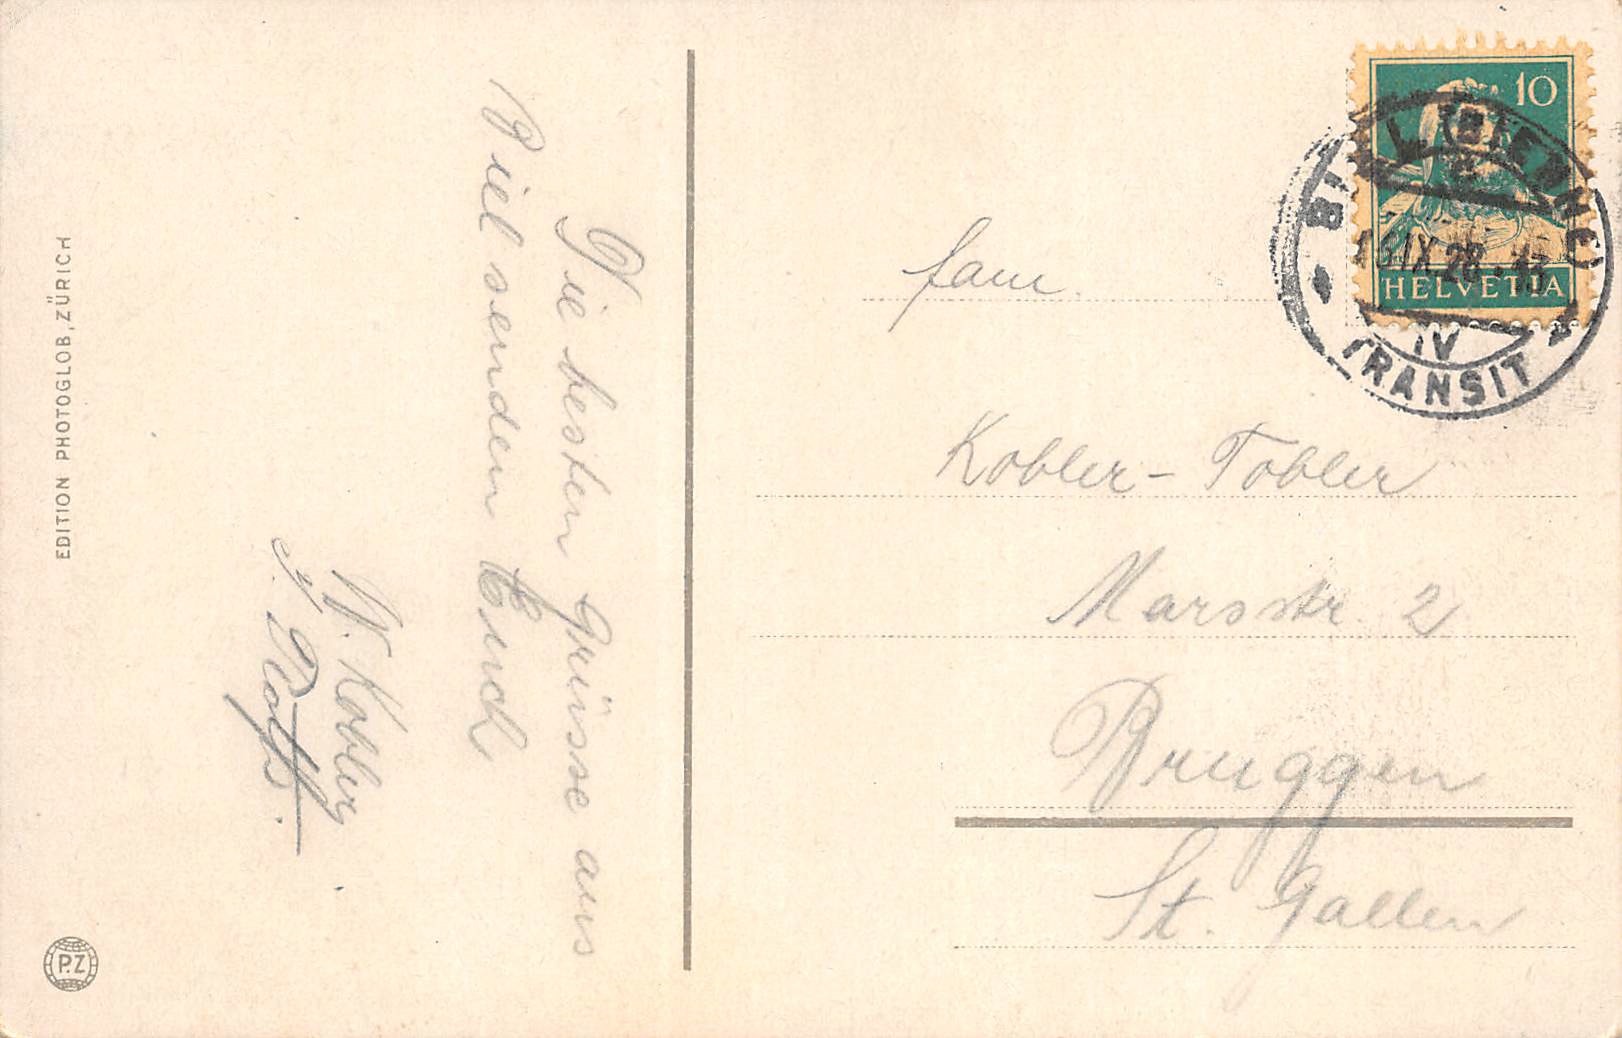 EDITION PHOTOGLOB, ZÜRICH
P.Z
Die besten Grüsse aus
Biel senden Euch
W. Kobler
10
HELVETIA
BIEL (BIENNE)
IX.28
IV
TRANSIT
Fam.
Kobler-Tobler
Marsstr. 2
Bruggen
St. Gallen